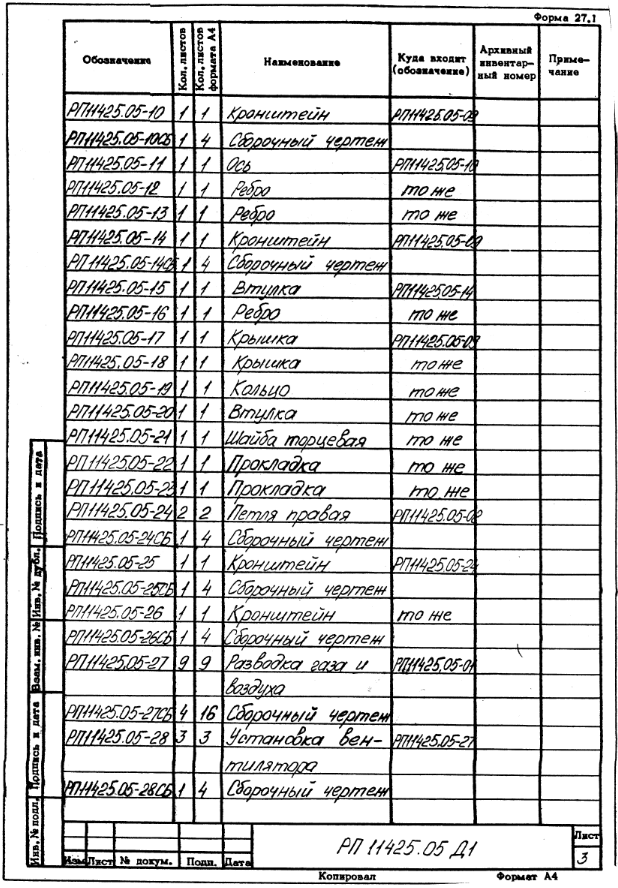 Форма 27.1
Обозначение Кол. листов Кол. листов формата А4 Наименование Куда входит (обозначение) Архивный инвентар-ный номер Приме-чание
РП11425.05-10 1 1 Кронштейн РП11425.05-09
РП11425.05-10СБ 1 4 Сборочный чертеж
РП11425.05-11 1 1 Ось РП11425.05-10
РП11425.05-12 1 1 Ребро то же
РП11425.05-13 1 1 Ребро то же
РП11425.05-14 1 1 Кронштейн РП11425.05-09
РП11425.05-14СБ 1 4 Сборочный чертеж
РП11425.05-15 1 1 Втулка РП11425.05-14
РП11425.05-16 1 1 Ребро то же
РП11425.05-17 1 1 Крышка РП11425.05-09
РП11425.05-18 1 1 Крышка то же
РП11425.05-19 1 1 Кольцо то же
РП11425.05-20 1 1 Втулка то же
РП11425.05-21 1 1 Шайба торцевая то же
РП11425.05-22 1 1 Прокладка то же
РП11425.05-23 1 1 Прокладка то же
РП11425.05-24 2 2 Петля правая РП11425.05-08
РП11425.05-24СБ 1 4 Сборочный чертеж
РП11425.05-25 1 1 Кронштейн РП11425.05-24
РП11425.05-25СБ 1 4 Сборочный чертеж
РП11425.05-26 1 1 Кронштейн то же
РП11425.05-26СБ 1 4 Сборочный чертеж
РП11425.05-27 9 9 Разводка газа и РП11425.05-01
воздуха
РП11425.05-27СБ 4 16 Сборочный чертеж
РП11425.05-28 3 3 Установка вен- РП11425.05-27
тилятора
РП11425.05-28СБ 1 4 Сборочный чертеж
Инв. № подл. Подпись и дата Взам. инв. № Инв. № дубл. Подпись и дата
РП 11425.05 Д1
Лист
3
Изм Лист № докум. Подп. Дата
Копировал Формат А4